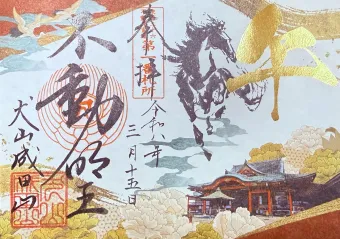 午
奉拝
令和八年
三月十五日
不動明王
犬山成田山